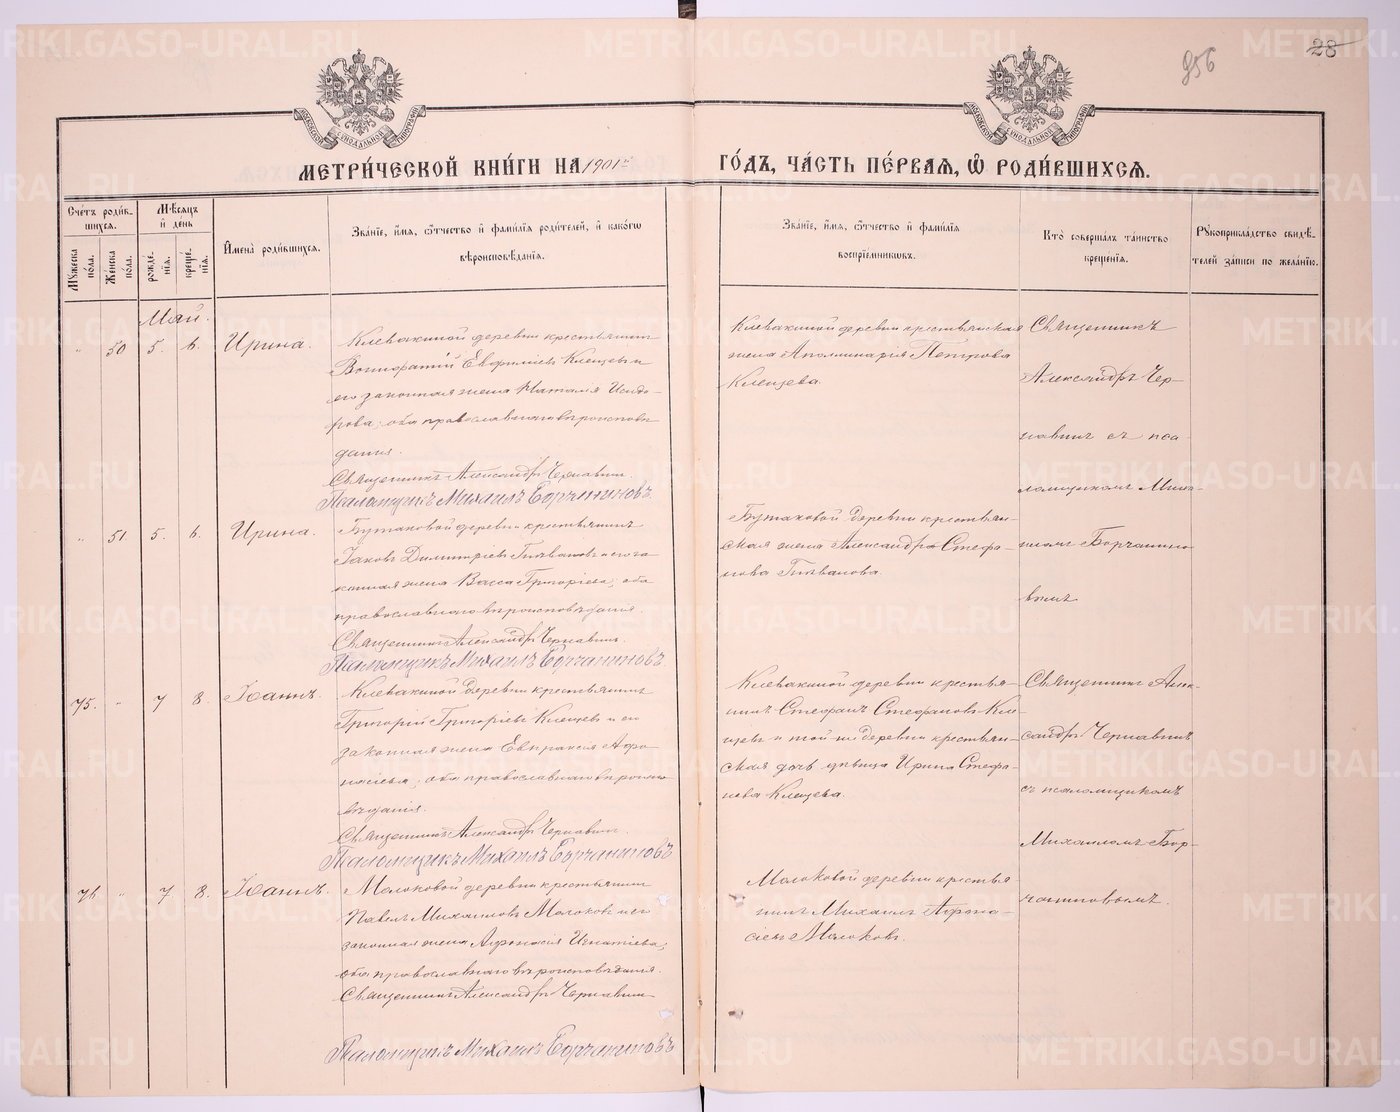 956
28
МОСКОВСКОЙ СИНОДАЛЬНОЙ ТИПОГРАФІИ
МОСКОВСКОЙ СИНОДАЛЬНОЙ ТИПОГРАФІИ
МЕТРИ́ЧЕСКОЙ КНИ́ГИ НА 1901й ГО́ДЪ, ЧА́СТЬ ПЕ́РВАѦ, Ѡ҆ РОДИ́ВШИХСѦ.
Сче́тъ роди́в-
шихсѧ.
Мꙋ́жеска по́ла.
Же́нска по́ла.
Мѣ́сѧцъ
и҆ де́нь
рожде́-
нїѧ.
креще́-
нїѧ.
И҆мена̀ роди́вшихсѧ.
Зва́нїе, и҆́мѧ, ѻ҆́тчество и҆ фами́лїѧ роди́телей, и҆ како́гѡ
вѣроисповѣ́данїѧ.
Зва́нїе, и҆́мѧ, ѻ҆́тчество и҆ фами́лїѧ
воспрїе́мникѡвъ.
Кто̀ соверша́лъ та́инство
креще́нїѧ.
Рꙋкоприкла́дство свидѣ́-
телей за́писи по жела́нїю.
Май.
" 50 5. 6. Ирина.
Клевакиной деревни крестьянинъ
Вонифатій Евфиміевъ Клещевъ и
его законная жена Наталія Исидо-
рова; оба православнаго вѣроисповѣ
данія.
Священникъ Александръ Чернавинъ
Псаломщикъ Михаилъ Борчаниновъ
Клевакиной деревни крестьянская
жена Аполлинарія Петрова
Клещева.
Священникъ
Александръ Чер-
навинъ съ пса-
ломщикомъ Миха-
иломъ Борчанино
вымъ
" 51 5. 6. Ирина.
Бутаковой деревни крестьянинъ
Іаковъ Димитріевъ и его за
конная жена Васса Григоріева; оба
православнаго вѣроисповѣданія.
Священникъ Александръ Чернавинъ.
Псаломщикъ Михаилъ Борчаниновъ.
Бутаковой деревни крестьян-
ская жена Александра Стефа-
нова
75. " 7 8. Іоаннъ.
Клевакиной деревни крестьянинъ
Григорій Григоріевъ Клещевъ и его
законная жена Евпраксія Афо-
насьева; оба православнаго вѣроиспо-
вѣданія.
Священникъ Александръ Чернавинъ.
Псаломщикъ Михаилъ Борчаниновъ
Клевакиной деревни крестья-
нинъ Стефанъ Стефановъ Кле-
щевъ и той же деревни крестьян-
ская дочь дѣвица Ирина Стефа-
нова Клещева.
Священникъ Алек-
сандръ Чернавинъ
съ псаломщикомъ
Михаиломъ Бор-
чаниновымъ.
76. " 7. 8. Іоаннъ.
Молоковой деревни крестьянинъ
Павелъ Михаиловъ Молоковъ и его
законная жена Афонасія Игнатіева;
оба православнаго вѣроисповѣданія.
Священникъ Александръ Чернавинъ
Псаломщикъ Михаилъ Борчаниновъ
Молоковой деревни крестья
нинъ Михаилъ Афона-
сіевъ Молоковъ.
METRIKI.GASO-URAL.RU